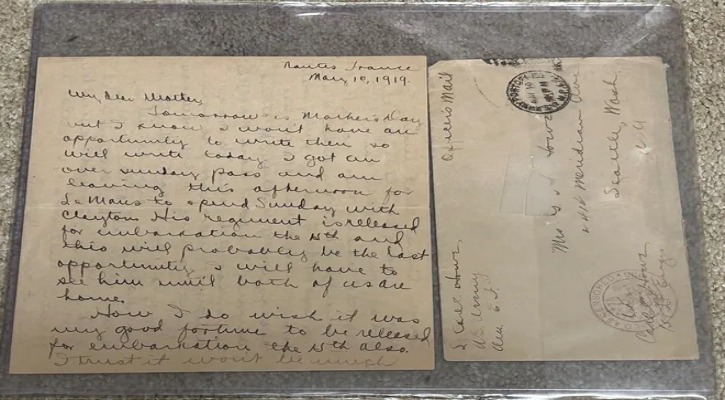 Nantes France
May, 10, 1919.
My Dear Mother,
Tomorrow is Mother's Day
but I know I won't have an
opportunity to write then so
will write today. I got an
over Sunday pass and am
leaving this afternoon for
Le Mans to spend Sunday with
Clayton. His regiment is released
for embarkation the 15th and
this will probably be the last
opportunity I will have to
see him until both of us are
home.
How I do wish it was
my good fortune to be released
for embarkation the 15th also.
I trust it won't be much
Officers Mail
Mrs
Meridian Ave
Seattle, Wash.
U.S. Army